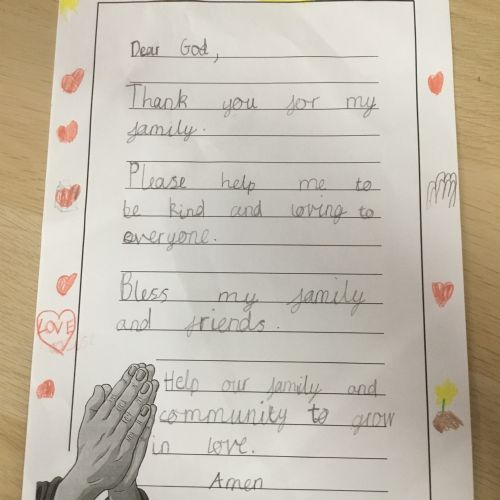 Dear God,
Thank you for my
family.
Please help me to
be kind and loving to
everyone.
Bless my family
and friends.
LOVE
Help our family and
community to grow
in love.
Amen